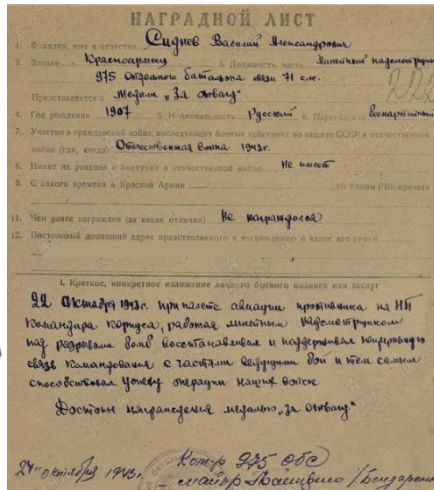 НАГРАДНОЙ ЛИСТ
1. Фамилия, имя и отчество Сиднев Василий Александрович
2. Звание Красноармеец 3. Должность, часть Линейный надсмотрщик
975 Отдельного батальона связи 71 с.к.
Представляется к Медали „За отвагу“
4. Год рождения 1907 5. Национальность Русский 6. Партийность Беспартийный
7. Участие в гражданской войне, последующих боевых действиях по защите СССР и отечественной
войне (где, когда) Отечественная война 1943г.
8. Имеет ли ранения и контузии в отечественной войне Не имеет
9. С какого времени в Красной Армии 10. Каким РВК призван
11. Чем ранее награжден (за какие отличия) Не награждался
12. Постоянный домашний адрес представляемого к награждению и адрес его семьи
I. Краткое, конкретное изложение личного боевого подвига или заслуг
22 октября 1943г. при налете авиации противника на НП
Командира Корпуса, работая линейным надсмотрщиком
под разрывами бомб восстанавливал и поддерживал непрерывную
связь командования с частями ведущими бой и тем самым
способствовал успеху операции наших войск
Достоин награждения медалью „За отвагу“
24" октября 1943г.
Ком-р 975 ОБС
майор /Бондаренко